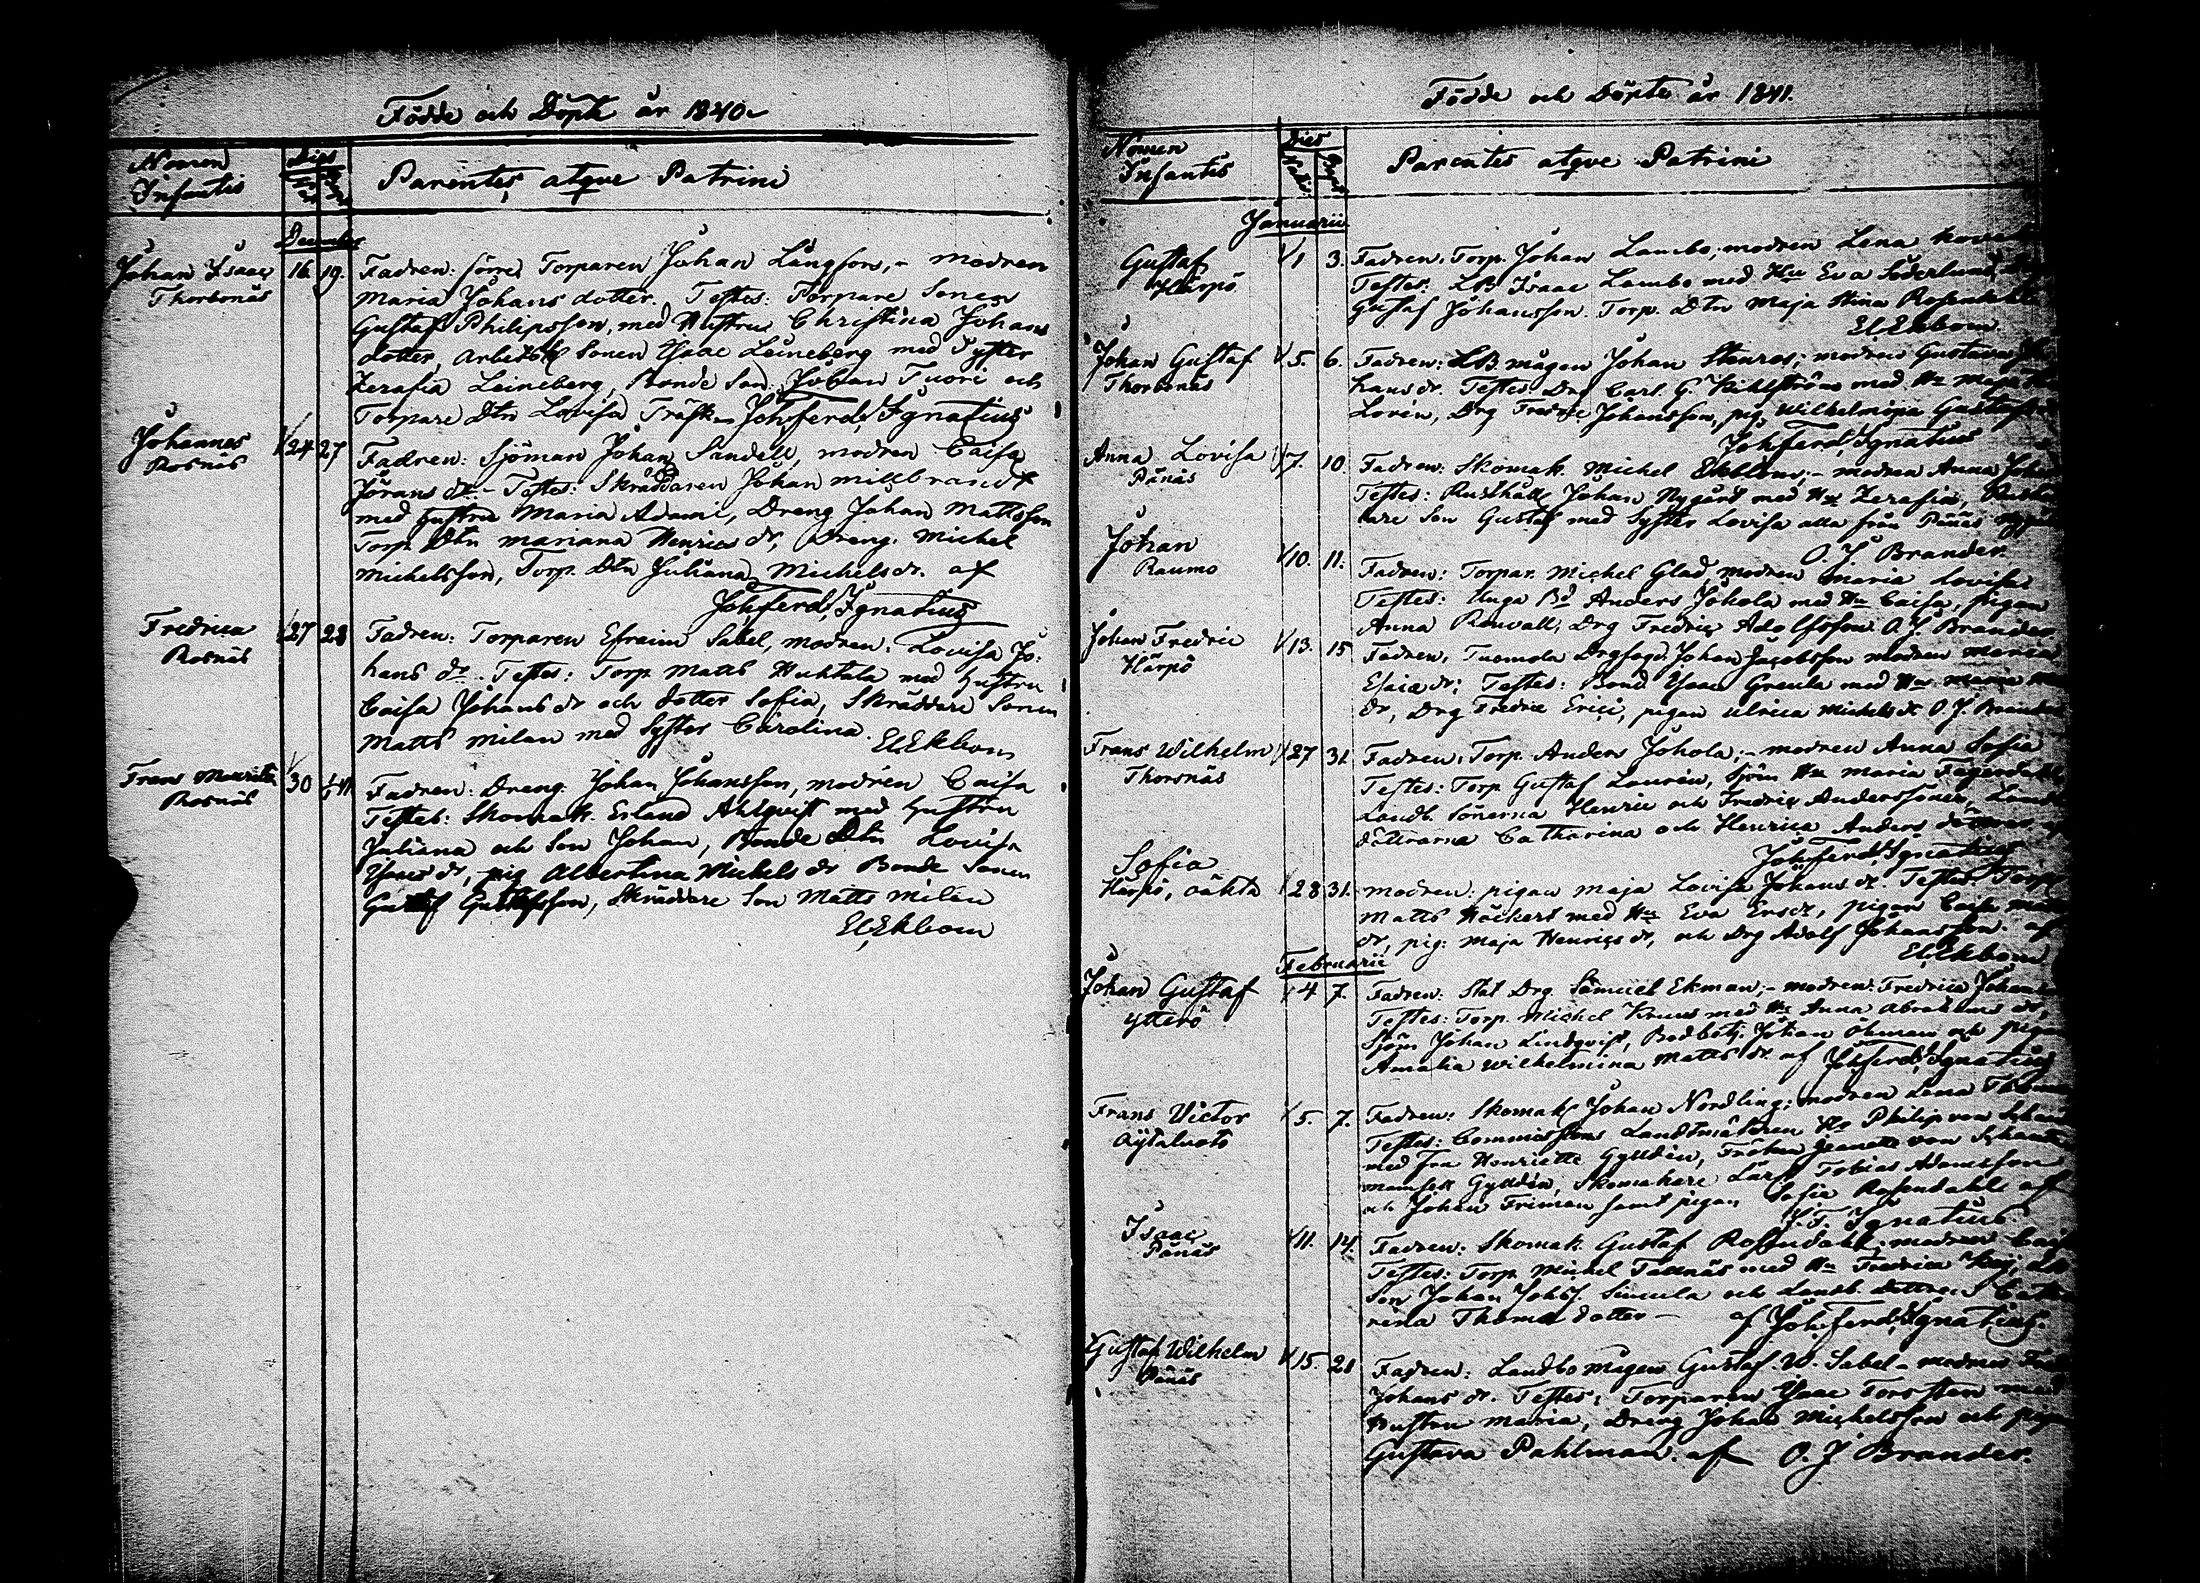 Födde och Döpte år 1840
Nomen Infantis
Dies
Parentes atqve Patrini
December
Johan Isaac
Thorbonäs
16. 19.
Fadren: förre Torparen Johan Långfors, - modren
Maria Johans dotter. Testes: Torpare Sonen
Gustaf Philipsson, med Hustru Christina Johans
dotter, arbetsk Sonen Isaac Leineberg med Syster
Zerafia Leineberg, Bonde Son: Johan Tuori och
Torpare Dtn Lovisa Träsk - Joh. Ferd. Ignatius
Johannes
Rosnäs
24 27
Fadren: Sjöman Johan Sandell, modren Caisa
Jörans dr. - Testes: Skräddaren Johan Millbrandt
med hustru Maria Adami, Dreng Johan Mattsson
Torp. Dtn Mariana Henrics dr, Dreng. Michel
Michelsson, Torp. Dtn Juliana Michelsdr. af
Joh. Ferd. Ignatius
Fredrica
Rosnäs
27 28
Fadren: Torparen Efraim Sabel, modren: Lovisa Jo-
hans dr. Testes: Torp Matts Huhtala med hustru
Caisa Johans dr och dotter Sofia, Skräddare Sonen
Matts Milan med Syster Carolina. El. Ekbom
Frans Mauritz
Rosnäs
30 1/1 41
Fadren: Dreng. Johan Johansson, modren Caisa
Testes: Skomak. Erland Ahlqvist med hustru
Juliana och Son Johan, Bonde Dtn Lovisa
dr, pig Albertina Michels dr Bonde Sonen
Gustaf Gustafsson, Skräddare Son Matts Milan
El. Ekbom
Födde och Döpte år 1841.
Nomen Infantis
Dies
Natus Bapt
Parentes atqve Patrini
Januarii
Gustaf
Härpö
1 3.
Fadren: Torp. Johan Lambo; modren Lena
Testes: LB Isaac Lambo med Hu Eva Söderlund,
Gustaf Johansson. Torp. Dtn Maja Stina Rosendahl
El. Ekbom.
Johan Gustaf
Thorbonäs
5. 6.
Fadren: LB mågen Johan Stenros; modren Gustava Jo-
hans dr. Testes Drg Carl G. Kihlström med Hu Maja
Lovén, Drg Fredric Johansson, pig Wilhelmina
Joh. Ferd. Ignatius
Anna Lovisa
Pänäs
7. 10.
Fadren: Skomak. Michel Ekblom, - modren Anna
Testes: Rusthåll. Johan Nygård med Hu Zerafia,
lare Son Gustaf med Syster Lovisa alla från Pänäs
O. J. Brander
Johan
Raumo
10. 11.
Fadren: Torpar. Michel Glad, modren Maria Lovisa
Testes: Unga Bd Anders Johola med Hu Caisa, pigan
Anna Renvall, Drg Fredric Adolfsson O. J. Brander
Johan Fredric
Härpö
13. 15
Fadren, Tuomola Drgfogd. Johan Jacobsson modren Maria
Esaiæ dr; Testes: Bond Isaac Greula med Hu Maria
dr, Drg Fredric Erici, pigan Ulrica Michels dr O. J. Brander
Frans Wilhelm
Thorsnäs
27 31
Fadren: Torp Anders Johola; - modren Anna Sofia
Testes: Torp Gustaf Laurén, Sjöm Hu Maria Fagerdahl
Landb. Sönerna Henric och Fredric Anderssöner,
döttrarna Catharina och Henrica Anders döttrar, af
Joh. Ferd. Ignatius
Sofia
Härpö, oäkta
28 31.
modren: pigan Maja Lovisa Johans dr. Testes: Torp
Matts Höckert med Hu Eva Ersdr, pigan Caisa
dr, pig: Maja Henrics dr, och Drg Adolf Johansson af
El. Ekbom
Februarii
Johan Gustaf
Ytterö
4 7.
Fadren: Stat Drg Samuel Ekman; - modren: Fredrica
Testes: Torp. Michel Kruus med Hu Anna Abrahams dr,
Sjöm Johan Lindqvist, Bodbetj. Johan Öhman och pigan
Amalia Wilhelmina Matts dr. af Joh. Ferd. Ignatius
Frans Victor
Äytaluoto
5. 7.
Fadren: Skomak Johan Nordling; modren Lena
Testes: Commissions Landtmätaren Hr Philip von
med Fru Henriette Gyldén, Fröken Jeanette von
mamsell Gyldén, Skomakare Lärl. Tobias Adamsson
och Johan Friman samt pigan Sofia Rosendahl af
J. F. Ignatius
Isaac
Pänäs
11. 14.
Fadren: Skomak. Gustaf Rosendahl; modren
Testes: Torp Michel Tallnäs med Hu Fredrica
Son Johan Johs. Simula och Landb. Dottren Catha
rina Thomædotter - af Joh. Ferd. Ignatius.
Gustaf Wilhelm
Pänäs
15. 21
Fadren: Landbo Mågen Gustaf W. Sabel - modren
Johans dr. Testes: Torparen Isaac Forsten med
Hustru Maria, Dreng Johan Michelsson och pigan
Gustava Pahlman. af O. J Brander.